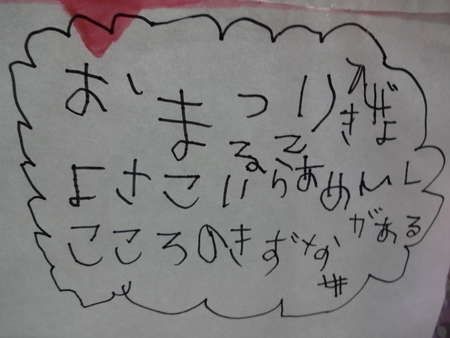 おまつり
きぜよ
よさこいらあめん
こころのきずな
がある